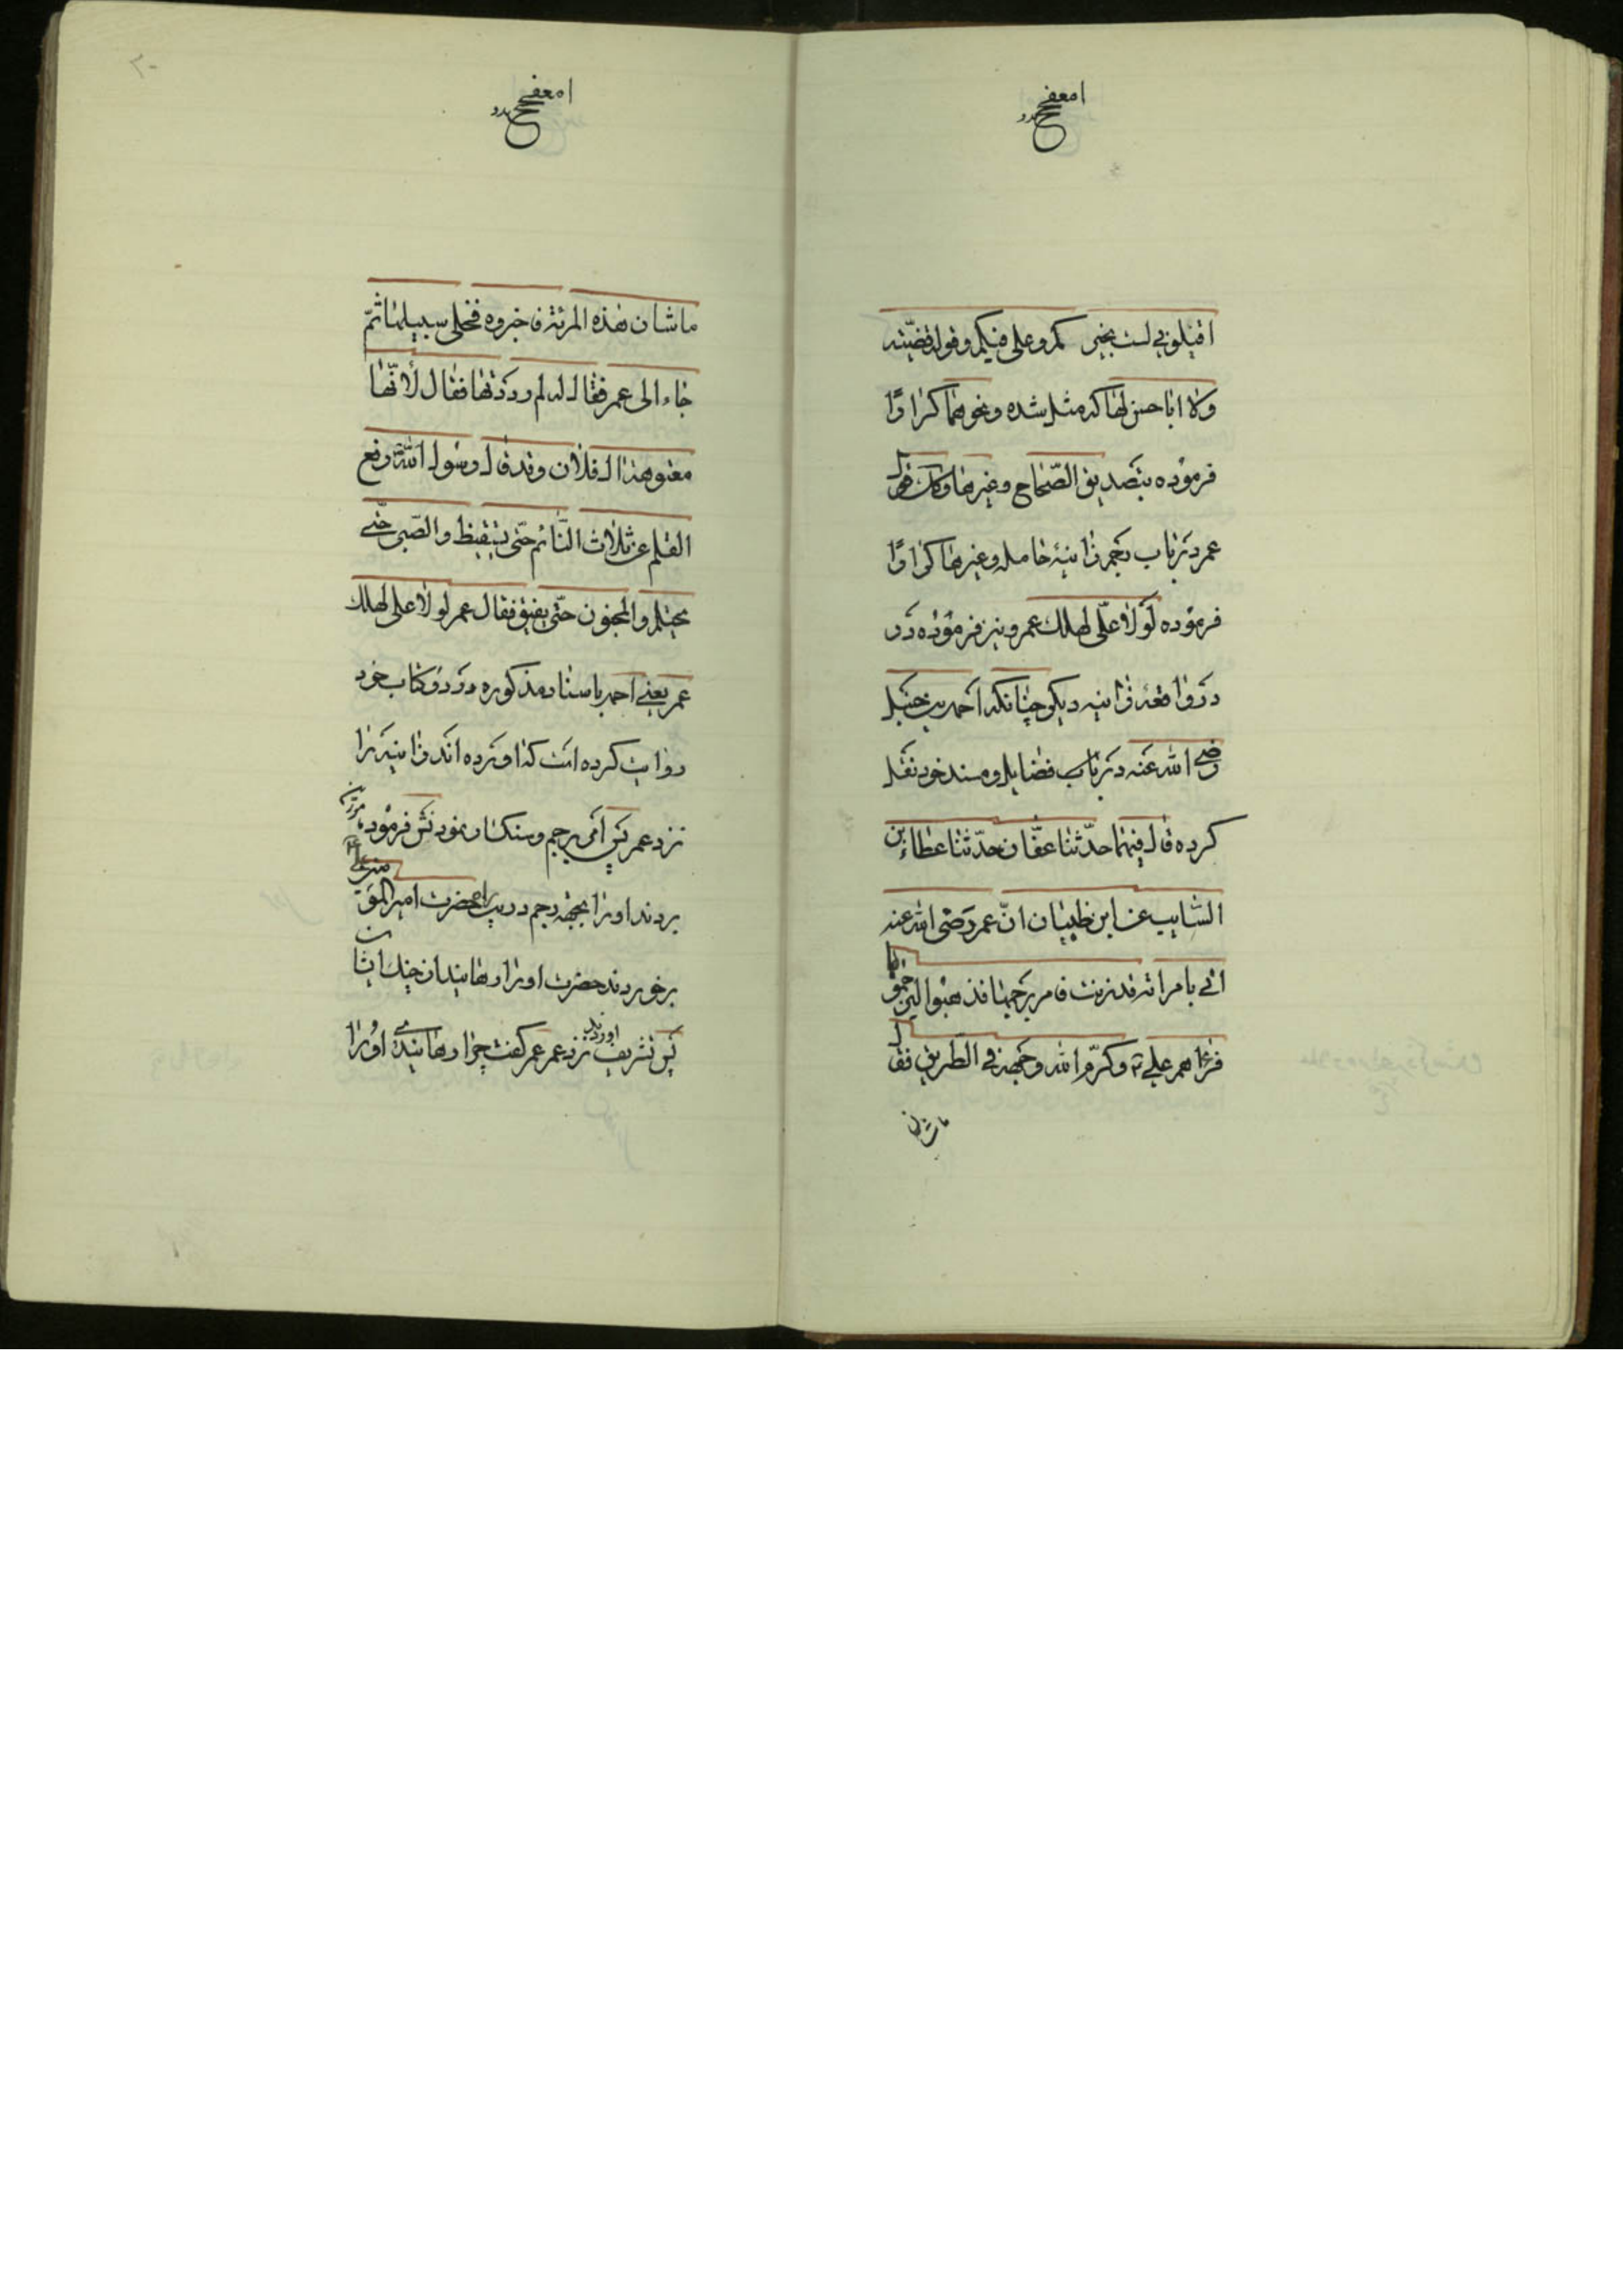 اقیلونی لست بخیر کم و علی فیکم و قول قضیّته
ولا ابا حسن لها که مثل شده و نحوهما کرارًا
فرموده بتصدیق الصّحاح و غیرها و کک قول
عمر در باب رجم زانیهٔ حامله و غیرها کرارًا
فرموده لولا علّی لهلک عمر و نیز فرموده در
در واقعهٔ زانیه دیگر چنانکه احمد بن حنبل
رضی الله عنه در باب فضایل و مسند خود نقل
کرده قال فیهما حدّثنا عفّان حدّثنا عطاء بن
السّایب عن ابن ظبیان انّ عمر رضی الله عنه
اتی بامراته قد زنت فامر برجمها فذهبوا لیرجموها
فراهم علی و کرّم الله وجهه فی الطریق فقال
ما شان
ما شان هذه المرئة فاخبروه فخلی سبیلها ثمّ
جاء الی عمر فقال له لم رددتها فقال لأنّها
معتوهة ال فلان و قد قال رسول الله رفع
القلم عن ثلاث النّائم حتّی یتیقظ و الصّبی حتّی
یحتلم و المجنون حتّی یفیق فقال عمر لولا علی لهلک
عمر یعنی احمد باسناد مذکوره در دو کتاب خود
روایت کرده است که آورده اند زانیه را
نزد عمر پس امر برجم و سنکسار نمودنش فرمود
بردند او را بجهة رجم در راه بحضرت امیر المؤمنین علی
برخوردند حضرت او را رهانید از چنک ایشان
پس تشریف آوردند نزد عمر عمر کفت چرا رهانیدهٔ او را